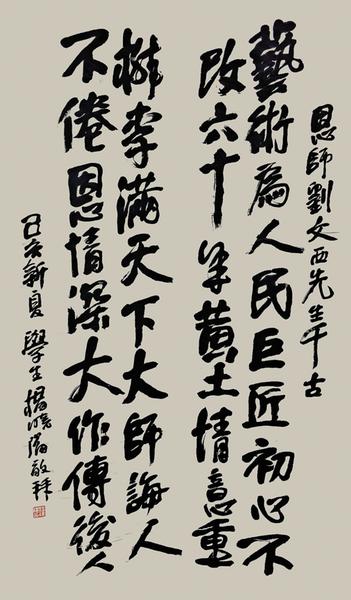 恩師劉文西先生千古
藝術為人民巨匠初心不
改六十年黄土情意重
桃李滿天下大師誨人
不倦恩情深大作傳後人
己亥新夏 學生楊曉陽敬拜